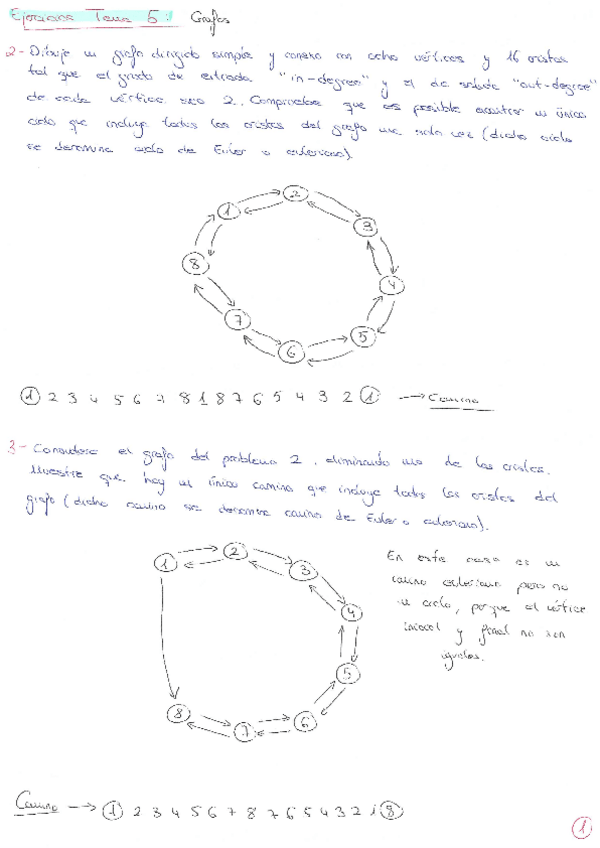 Ejercicios Tema 5: Grafos
2- Dibuje un grafo dirigido simple y conexo con ocho vértices y 16 aristas
tal que el grado de entrada "in-degree" y el de salida "out-degree"
de cada vértice sea 2. Compruebe que es posible encontrar un único
ciclo que incluye todas las aristas del grafo una sola vez (dicho ciclo
se denomina ciclo de Euler o euleriano).
1
2
3
4
5
6
7
8
1 2 3 4 5 6 7 8 1 8 7 6 5 4 3 2 1 → Camino
3- Considere el grafo del problema 2, eliminando una de las aristas.
Muestre que hay un único camino que incluye todas las aristas del
grafo (dicho camino se denomina camino de Euler o euleriano).
En este caso es un
camino euleriano pero no
un ciclo, porque el vértice
inicial y final no son
iguales.
1
2
3
4
5
6
7
8
Camino → 1 2 3 4 5 6 7 8 7 6 5 4 3 2 1 8
1